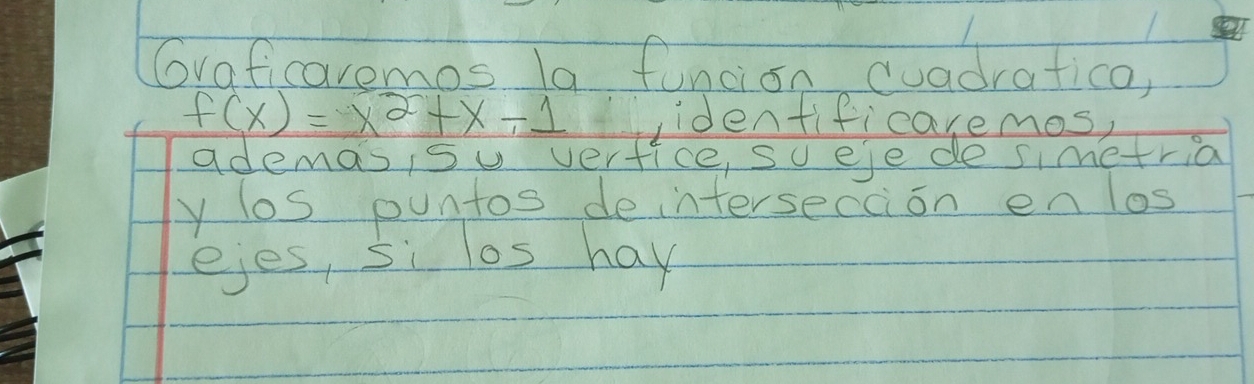 Graficaremos la función cuadratica,
f(x) = x²+x-1 , identificaremos,
además, su vertice, su eje de simetria
y los puntos de intersección en los
ejes, si los hay